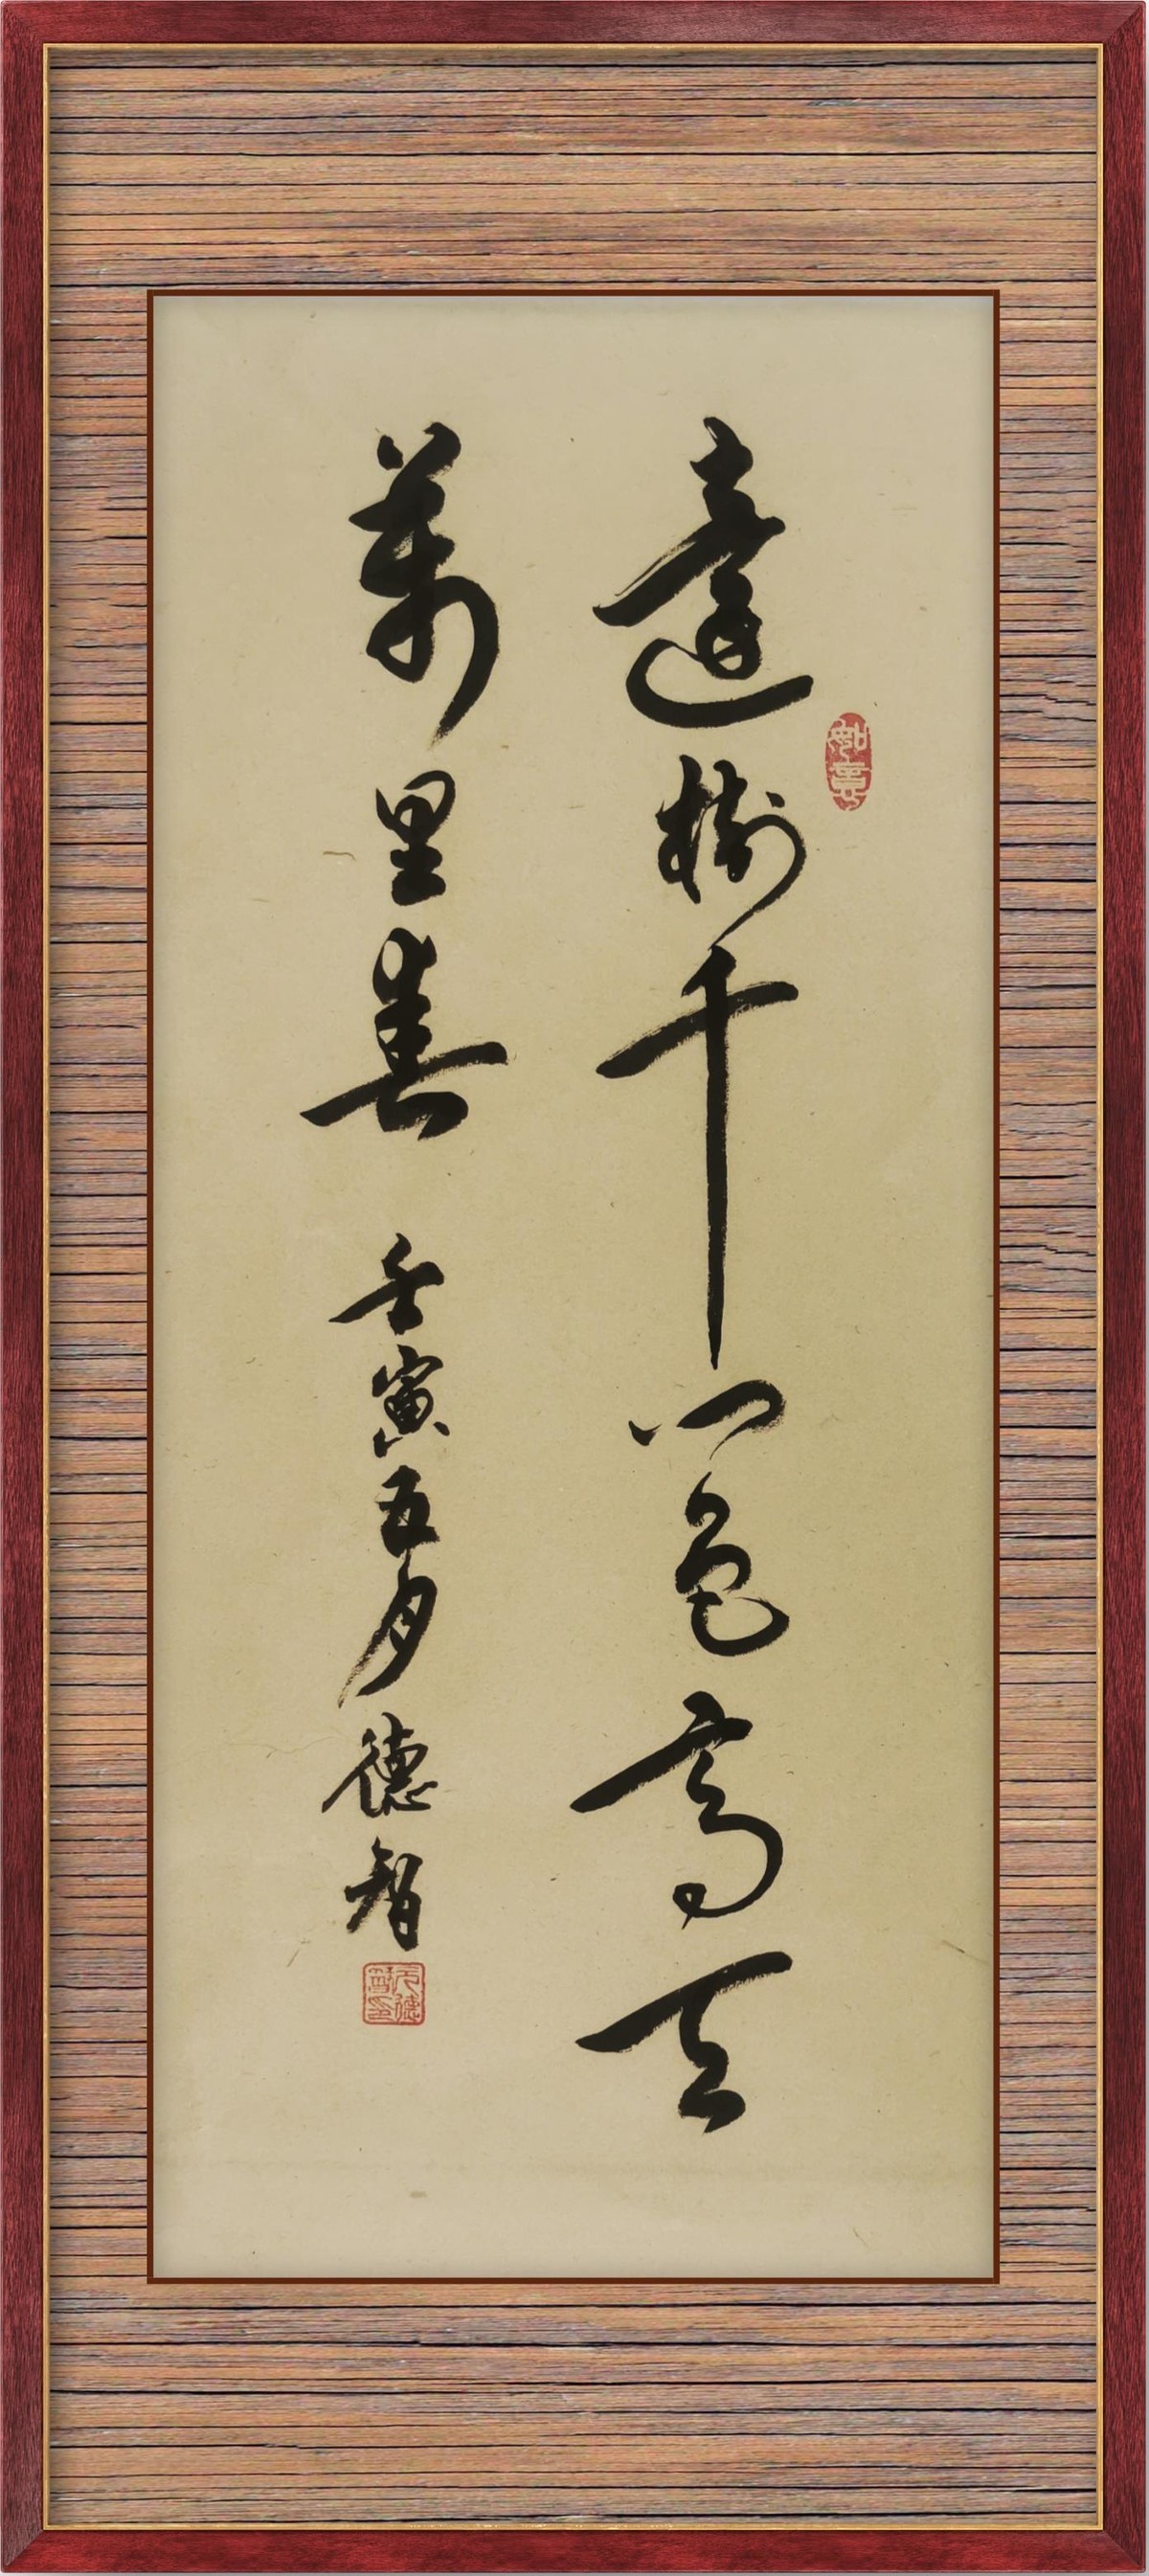 遠樹千門色高天
萬里春 壬寅五月德智
如意